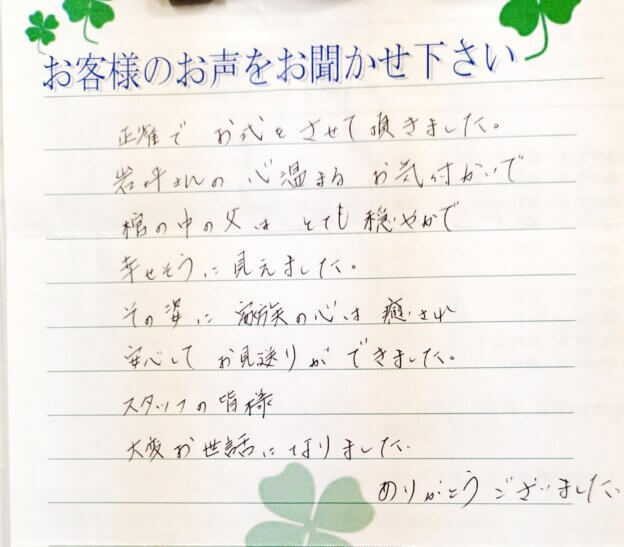 お客様のお声をお聞かせ下さい
正雀で お式を させて 頂きました。
さんの 心温まる お気付かいで
棺の中の父は とても 穏やかで
幸せそうに 見えました。
その姿に 家族の心は 癒され
安心して お見送りが できました。
スタッフの皆様
大変お世話になりました。
ありがとうございました。